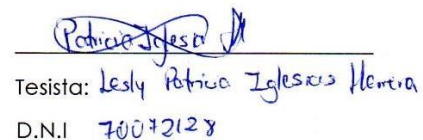 Patricia Iglesia
Tesista: Lesly Patricia Iglesias Herrera
D.N.I 70072128